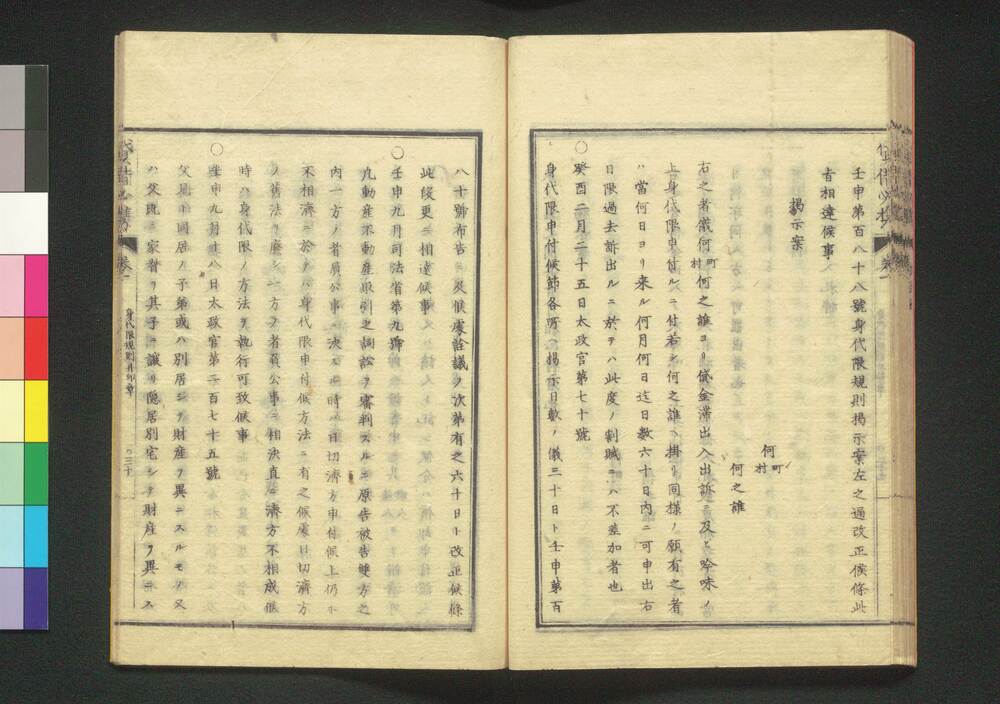 壬申第百八十八號身代限規則掲示案左之通改正候條此
者相達候事
掲示案
何町村
何之誰
右之者儀何町村何之誰ヨリ貸金滞出入出訴ニ及ヒ吟味ノ
上身代限申付ルニ付若シ何之誰ヘ掛リ同様ノ願有之者
ハ當何日ヨリ来ル何月何日迄日数六十日内ニ可申出右
日限過去訴出ルニ於テハ此度ノ割賦ニハ不差加者也
〇癸酉二月二十五日太政官第七十號
身代限申付候節各所ヘ掲示日数ノ儀三十日ト壬申第百
八十號布告ニ及候處詮議ノ次第有之六十日ト改正候條
此段更ニ相達候事
〇壬申九月司法省第九號
凡動産不動産取引之詞訟ヲ審判スルニ原告被告雙方之
内一方ノ者負公事ニ決スル時ハ日切濟方申付候上仍ホ
不相濟ニ於テハ身代限申付候方法ニ有之候處日切濟方
ノ舊法ヲ廢シ一方ノ者負公事ニ相決直ニ濟方不相成候
時ハ身代限ノ方法ヲ執行可致候事
〇壬申九月廿八日太政官第二百七十五號
父兄ト同居ノ子弟或ハ別居シテ財産ヲ異ニスルモノ又
ハ父既ニ家督ヲ其子ニ譲リ隠居別宅シテ財産ヲ異ニス
卷一
身代限規則并印章
〇三十